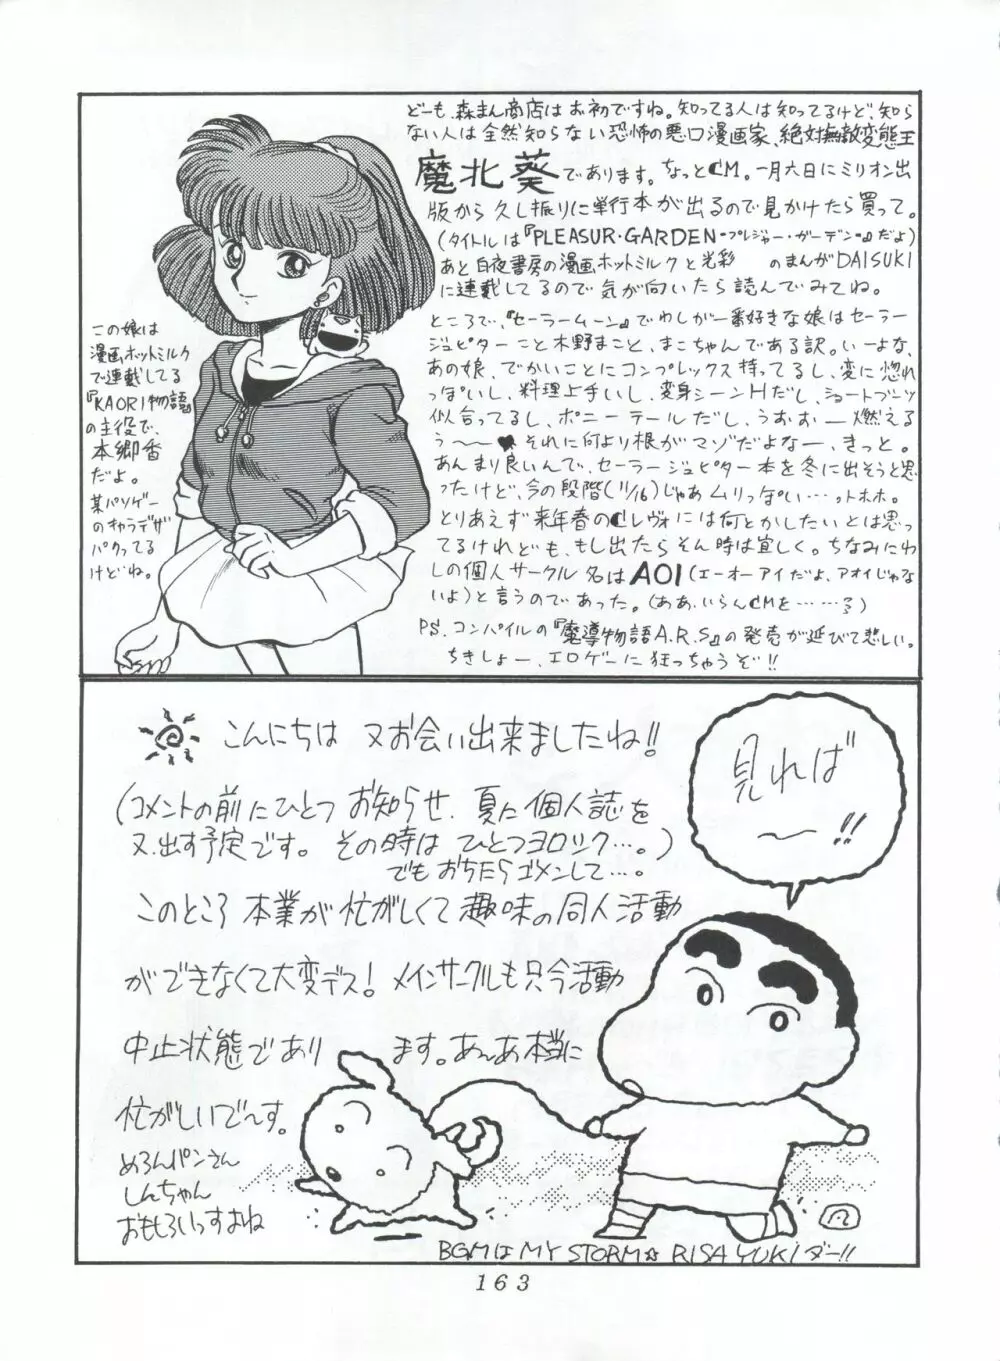 どーも、森まん商店はお初ですね。知ってる人は知ってるけど、知ら
ない人は全然知らない恐怖の悪口漫画家、絶対無敵変態王
魔北葵であります。ちょっとCM。一月六日にミリオン出
版から久し振りに単行本が出るので見かけたら買って。
(タイトルは『PLEASUR・GARDEN-プレジャー・ガーデン-』だよ)
あと白夜書房の漫画ホットミルクと光彩 のまんがDAISUKI
に連載してるので気が向いたら読んでみてね。
ところで、『セーラームーン』でわしが一番好きな娘はセーラー
ジュピターこと木野まこと、まこちゃんである訳。いーよな、
あの娘、でかいことにコンプレックス持ってるし、変に惚れ
っぽいし、料理上手いし、変身シーンHだし、ショートブーツ
似合ってるし、ポニーテールだし、うおぉー燃える
う〜〜♥それに何より根がマゾだよなー、きっと。
あんまり良いんで、セーラージュピター本を冬に出そうと思
ったけど、今の段階(11/16)じゃあムリっぽい…。トホホ。
とりあえず来年春のCレヴォには何とかしたいとは思っ
てるけれども、もし出たらそん時は宜しく。ちなみにわ
しの個人サークル名はAOI(エーオーアイだよ、アオイじゃな
いよ)と言うのであった。(ああ、いらんCMを……る)
P.S. コンパイルの『魔導物語A.R.S』の発売が延びて悲しい。
ちきしょー、エロゲーに狂っちゃうぞ!!
この娘は
漫画ホットミルク
で連載してる
『KAORI物語』
の主役で、
本郷香
だよ。
某パソゲー
のキャラデザ
パクってる
けどね。
こんにちは 又お会い出来ましたね!!
(コメントの前にひとつ お知らせ、夏に個人誌を
又、出す予定です。その時は ひとつヨロシク…。)
でもおちたらゴメンして…。
このところ 本業が忙がしくて趣味の同人活動
ができなくて大変デス! メインサークルも只今活動
中止状態であり ます。あんあ本当に
忙がしいでーす。
めろんパンさん
しんちゃん
おもしろいっすよね
見れば
〜!!
BGMはMY STORM☆RISA YUKIダー!!
163